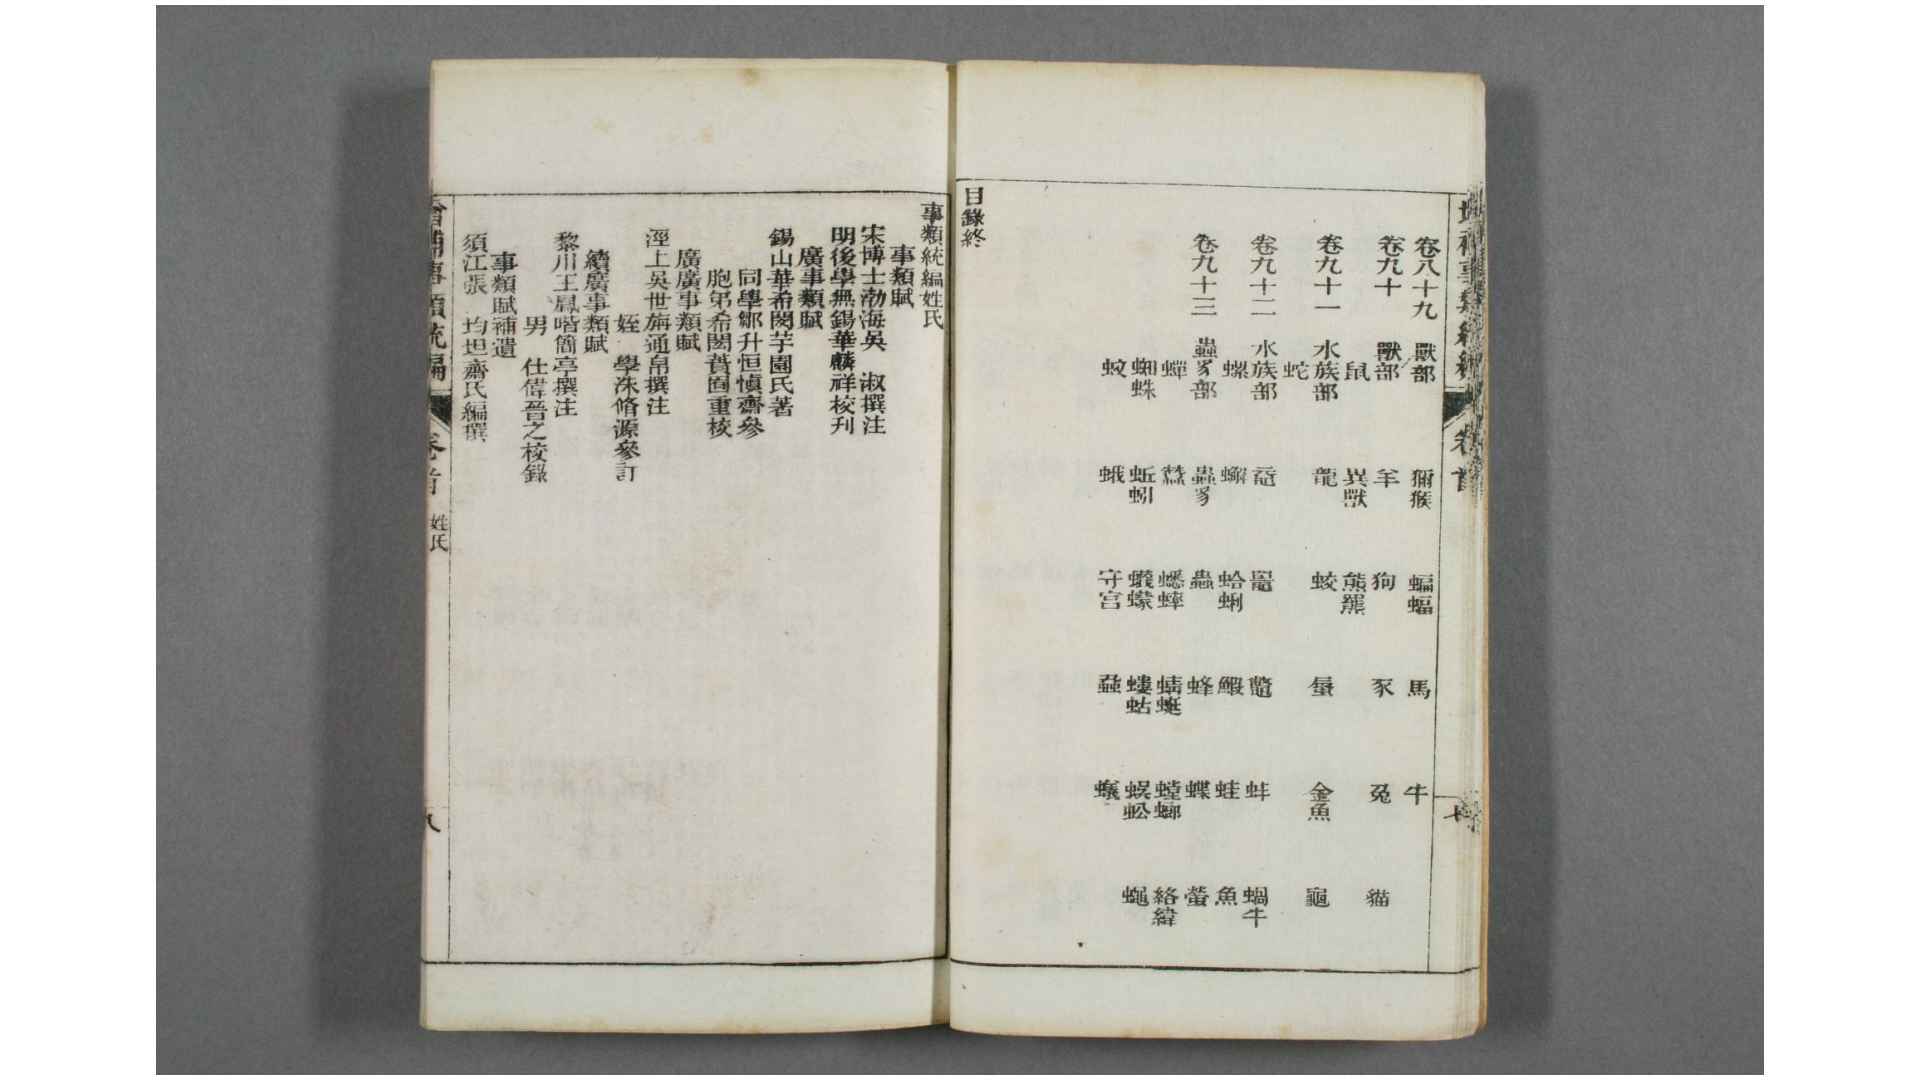 卷八十九　獸部　獼猴　蝙蝠　馬　牛
卷九十　獸部　羊　狗　豕　兔　貓
鼠　異獸　熊羆
卷九十一　水族部　龍　蛟　蜃　金魚　龜
蛇
卷九十二　水族部　黿　鼉　鼈　蚌　蝸牛
螺　蠏　蛤蜊　鰕　蛙　魚
卷九十三　蟲豸部　蟲豸　蟲　蜂　蝶　螢
蟬　蠶　蟋蟀　蜻蜓　螳螂　絡緯
蜘蛛　蚯蚓　蠛蠓　螻蛄　蜈蚣　蠅
蚊　蛾　守宮　蝨　蟻
目錄終
事類統編姓氏
事類賦
宋博士渤海吳　淑撰注
明後學無錫華麟祥校刊
廣事類賦
錫山華希閔芋園氏著
同學鄒升恒慎齋參
胞弟希閎蕡園重校
廣廣事類賦
涇上吳世旃通帛撰注
姪　學洙脩源參訂
續廣事類賦
黎川王鳳喈簡亭撰注
男　仕偉晉之校錄
事類賦補遺
須江張　均坦齋氏編撰
增補事類統編　卷首　姓氏　八